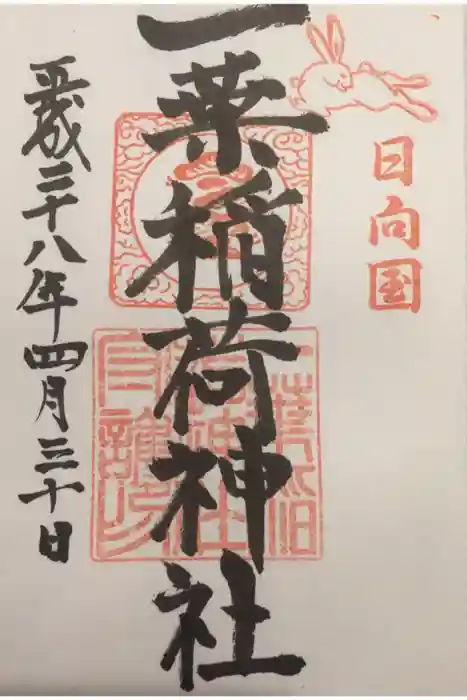 日向国
一葉稲荷神社
平成二十八年四月三十日
一葉稲
荷神社